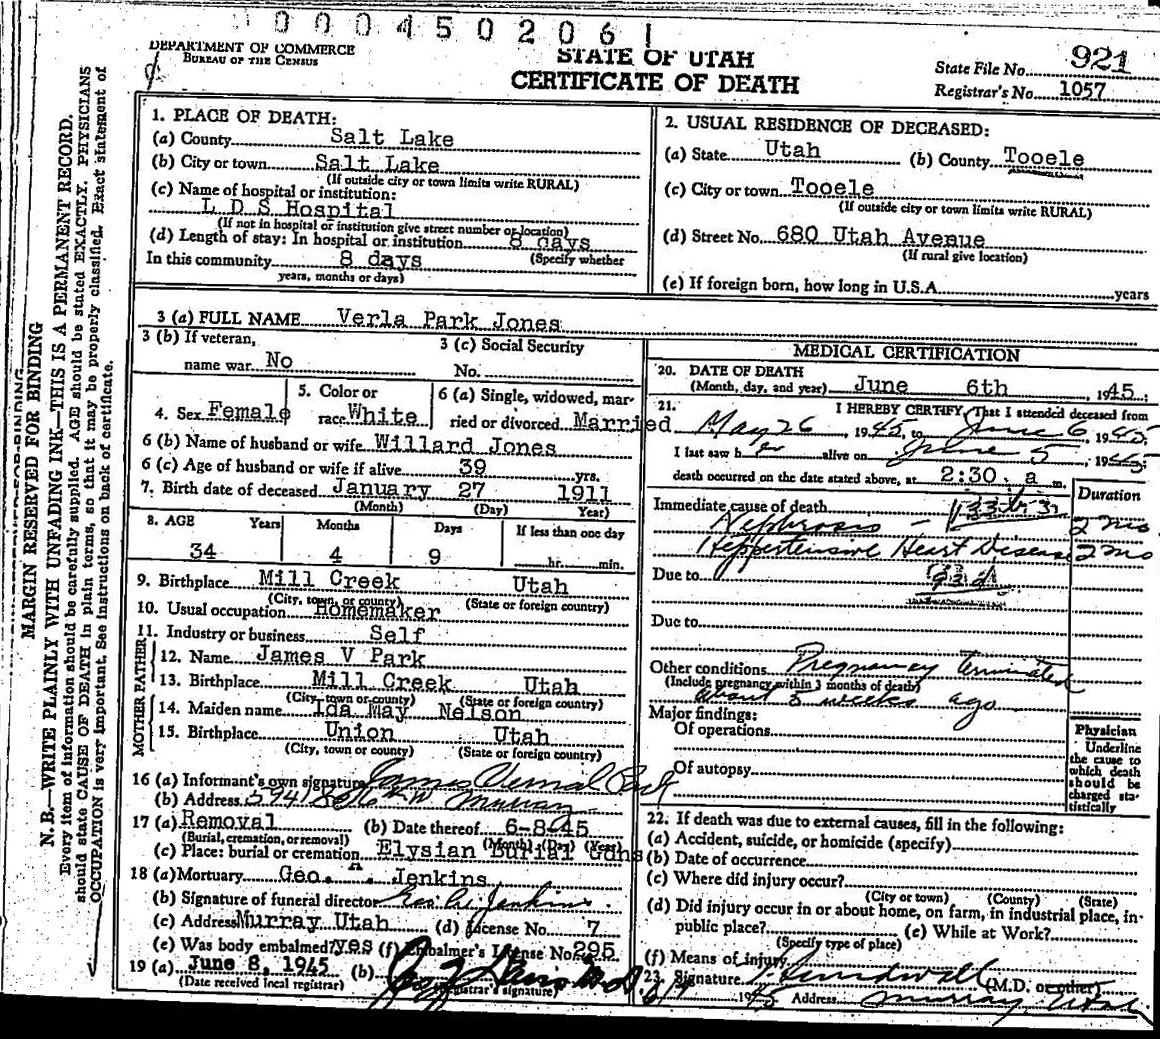 0004502061
DEPARTMENT OF COMMERCE
BUREAU OF THE CENSUS
STATE OF UTAH
CERTIFICATE OF DEATH
State File No. 921
Registrar's No. 1057
MARGIN RESERVED FOR BINDING
N. B.—WRITE PLAINLY WITH UNFADING INK—THIS IS A PERMANENT RECORD.
Every item of information should be carefully supplied. AGE should be stated EXACTLY. PHYSICIANS
should state CAUSE OF DEATH in plain terms, so that it may be properly classified. Exact statement of
OCCUPATION is very important. See instructions on back of certificate.
1. PLACE OF DEATH:
(a) County Salt Lake
(b) City or town Salt Lake
(If outside city or town limits write RURAL)
(c) Name of hospital or institution:
L D S Hospital
(If not in hospital or institution give street number or location)
(d) Length of stay: In hospital or institution 8 days
(Specify whether
In this community 8 days
years, months or days)
2. USUAL RESIDENCE OF DECEASED:
(a) State Utah (b) County Tooele
(c) City or town Tooele
(If outside city or town limits write RURAL)
(d) Street No. 680 Utah Avenue
(If rural give location)
(e) If foreign born, how long in U.S.A. years
3 (a) FULL NAME Verla Park Jones
3 (b) If veteran,
name war No
3 (c) Social Security
No.
4. Sex Female
5. Color or
race White
6 (a) Single, widowed, mar-
ried or divorced Married
6 (b) Name of husband or wife Willard Jones
6 (c) Age of husband or wife if alive 39 yrs.
7. Birth date of deceased January 27 1911
(Month) (Day) Year)
8. AGE Years Months Days If less than one day
34 4 9 hr. min.
9. Birthplace Mill Creek Utah
(City, town, or county) (State or foreign country)
10. Usual occupation Homemaker
11. Industry or business Self
FATHER
12. Name James V Park
13. Birthplace Mill Creek Utah
(City, town or county) (State or foreign country)
MOTHER
14. Maiden name Ida May Nelson
15. Birthplace Union Utah
(City, town or county) (State or foreign country)
16 (a) Informant's own signature James Vernal Park
(b) Address Murray
17 (a) Removal (b) Date thereof 6-8-45
(Burial, cremation, or removal) (Month) (Day) (Year)
(c) Place: burial or cremation Elysian Burial Gdns
18 (a) Mortuary Geo. A. Jenkins
(b) Signature of funeral director Geo. A. Jenkins.
(c) Address Murray Utah (d) License No. 7
(e) Was body embalmed? yes (f) Embalmer's License No. 295
19 (a) June 8, 1945 (b)
(Date received local registrar) (Registrar's signature)
MEDICAL CERTIFICATION
20. DATE OF DEATH
(Month, day, and year) June 6th, 1945.
21. I HEREBY CERTIFY, That I attended deceased from
May 26, 1945, to June 6, 1945.
I last saw her alive on June 5, 1945;
death occurred on the date stated above, at 2:30 a m.
Immediate cause of death Duration
Nephrosis - 2 mo
Heppertensive Heart Disease 2 mo
Due to 93d
Due to
Other conditions Pregnancy terminated
(Include pregnancy within 3 months of death)
about 3 weeks ago
Major findings:
Of operations
Of autopsy
Physician
Underline
the cause to
which death
should be
charged sta-
tistically
22. If death was due to external causes, fill in the following:
(a) Accident, suicide, or homicide (specify)
(b) Date of occurrence
(c) Where did injury occur?
(City or town) (County) (State)
(d) Did injury occur in or about home, on farm, in industrial place, in-
public place? (e) While at Work?
(Specify type of place)
(f) Means of injury
23. Signature (M.D. or other)
6/7 1945 Address Murray, Utah